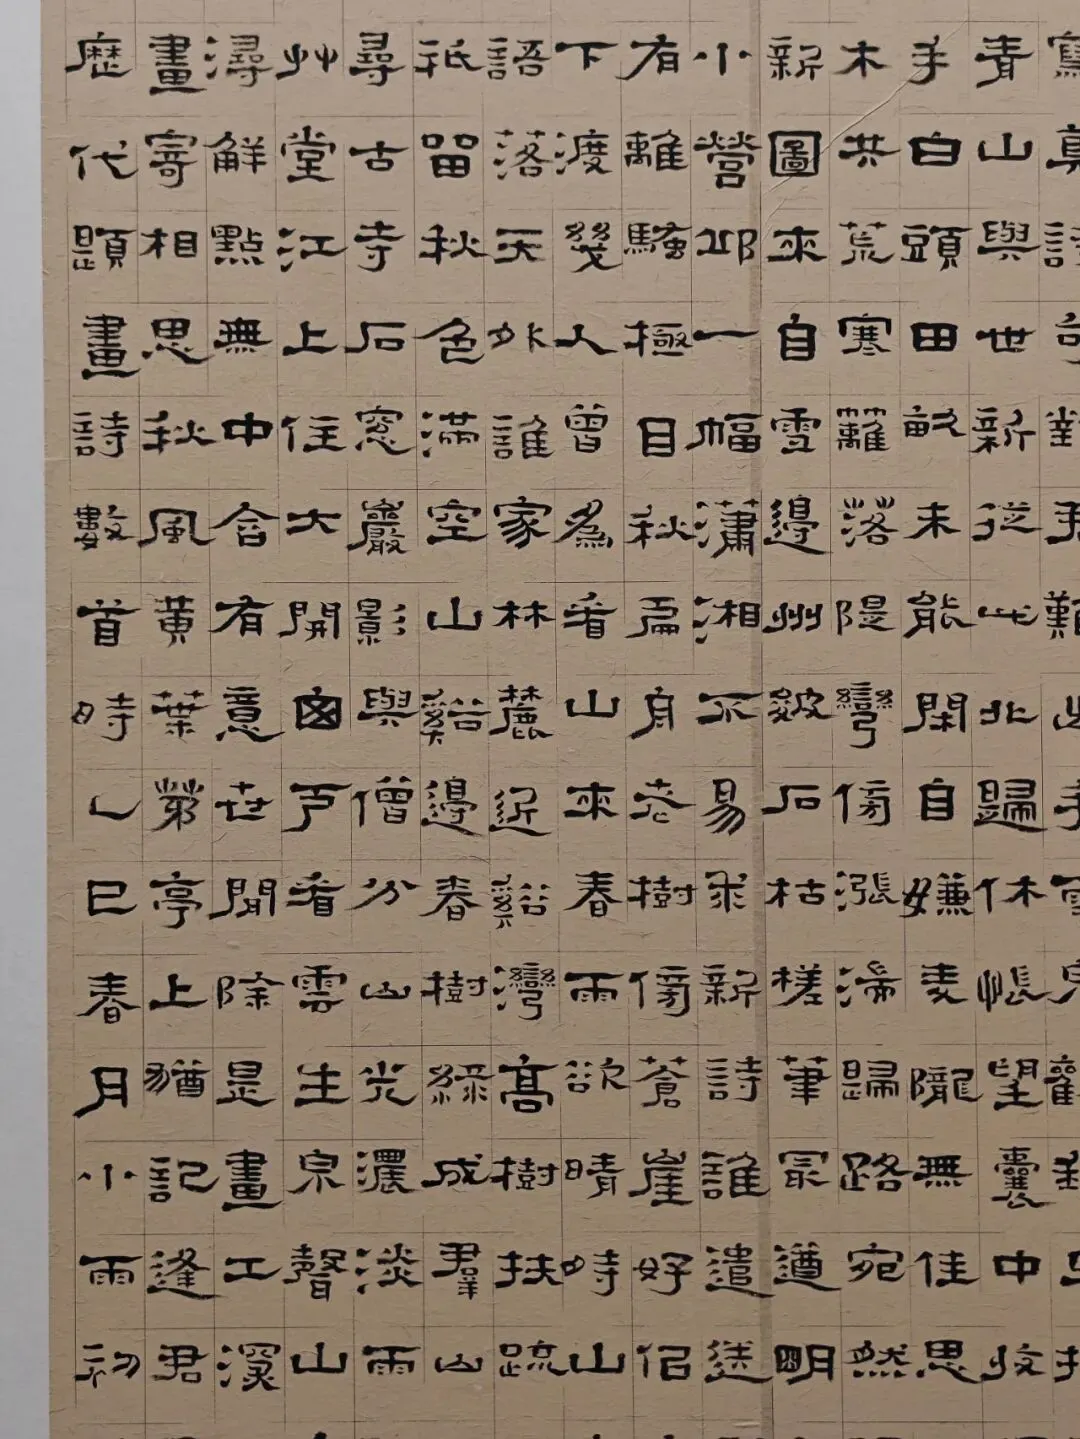 寫真詩
青山與世新從此北歸休悵望囊中收
手白頭田畝未能閑自嫌麦隴無佳思
木共荒寒籬落隄彎傍漲歸路宛然
新圖來自雪邊州皴石枯槎筆冣遒明
小營邱一幅瀟湘不易求新詩誰遣送
有離騷極目秋扁舟老樹傍蒼崖好侶
下渡幾人曾為看山來春雨欲晴時山
語落天外誰家林麓近谿灣高樹扶疏
祇留秋色滿空山谿邊春樹綠成羣山
尋古寺石窓巖影與僧分山光濃淡雨
艸堂江上住大開囪戶看雲生泉聲山
潯解點無中含有意世間除是畫工深
畫寄相思秋風黃葉勞亭上猶記逢君
歷代題畫詩數首時乙巳春月小雨初